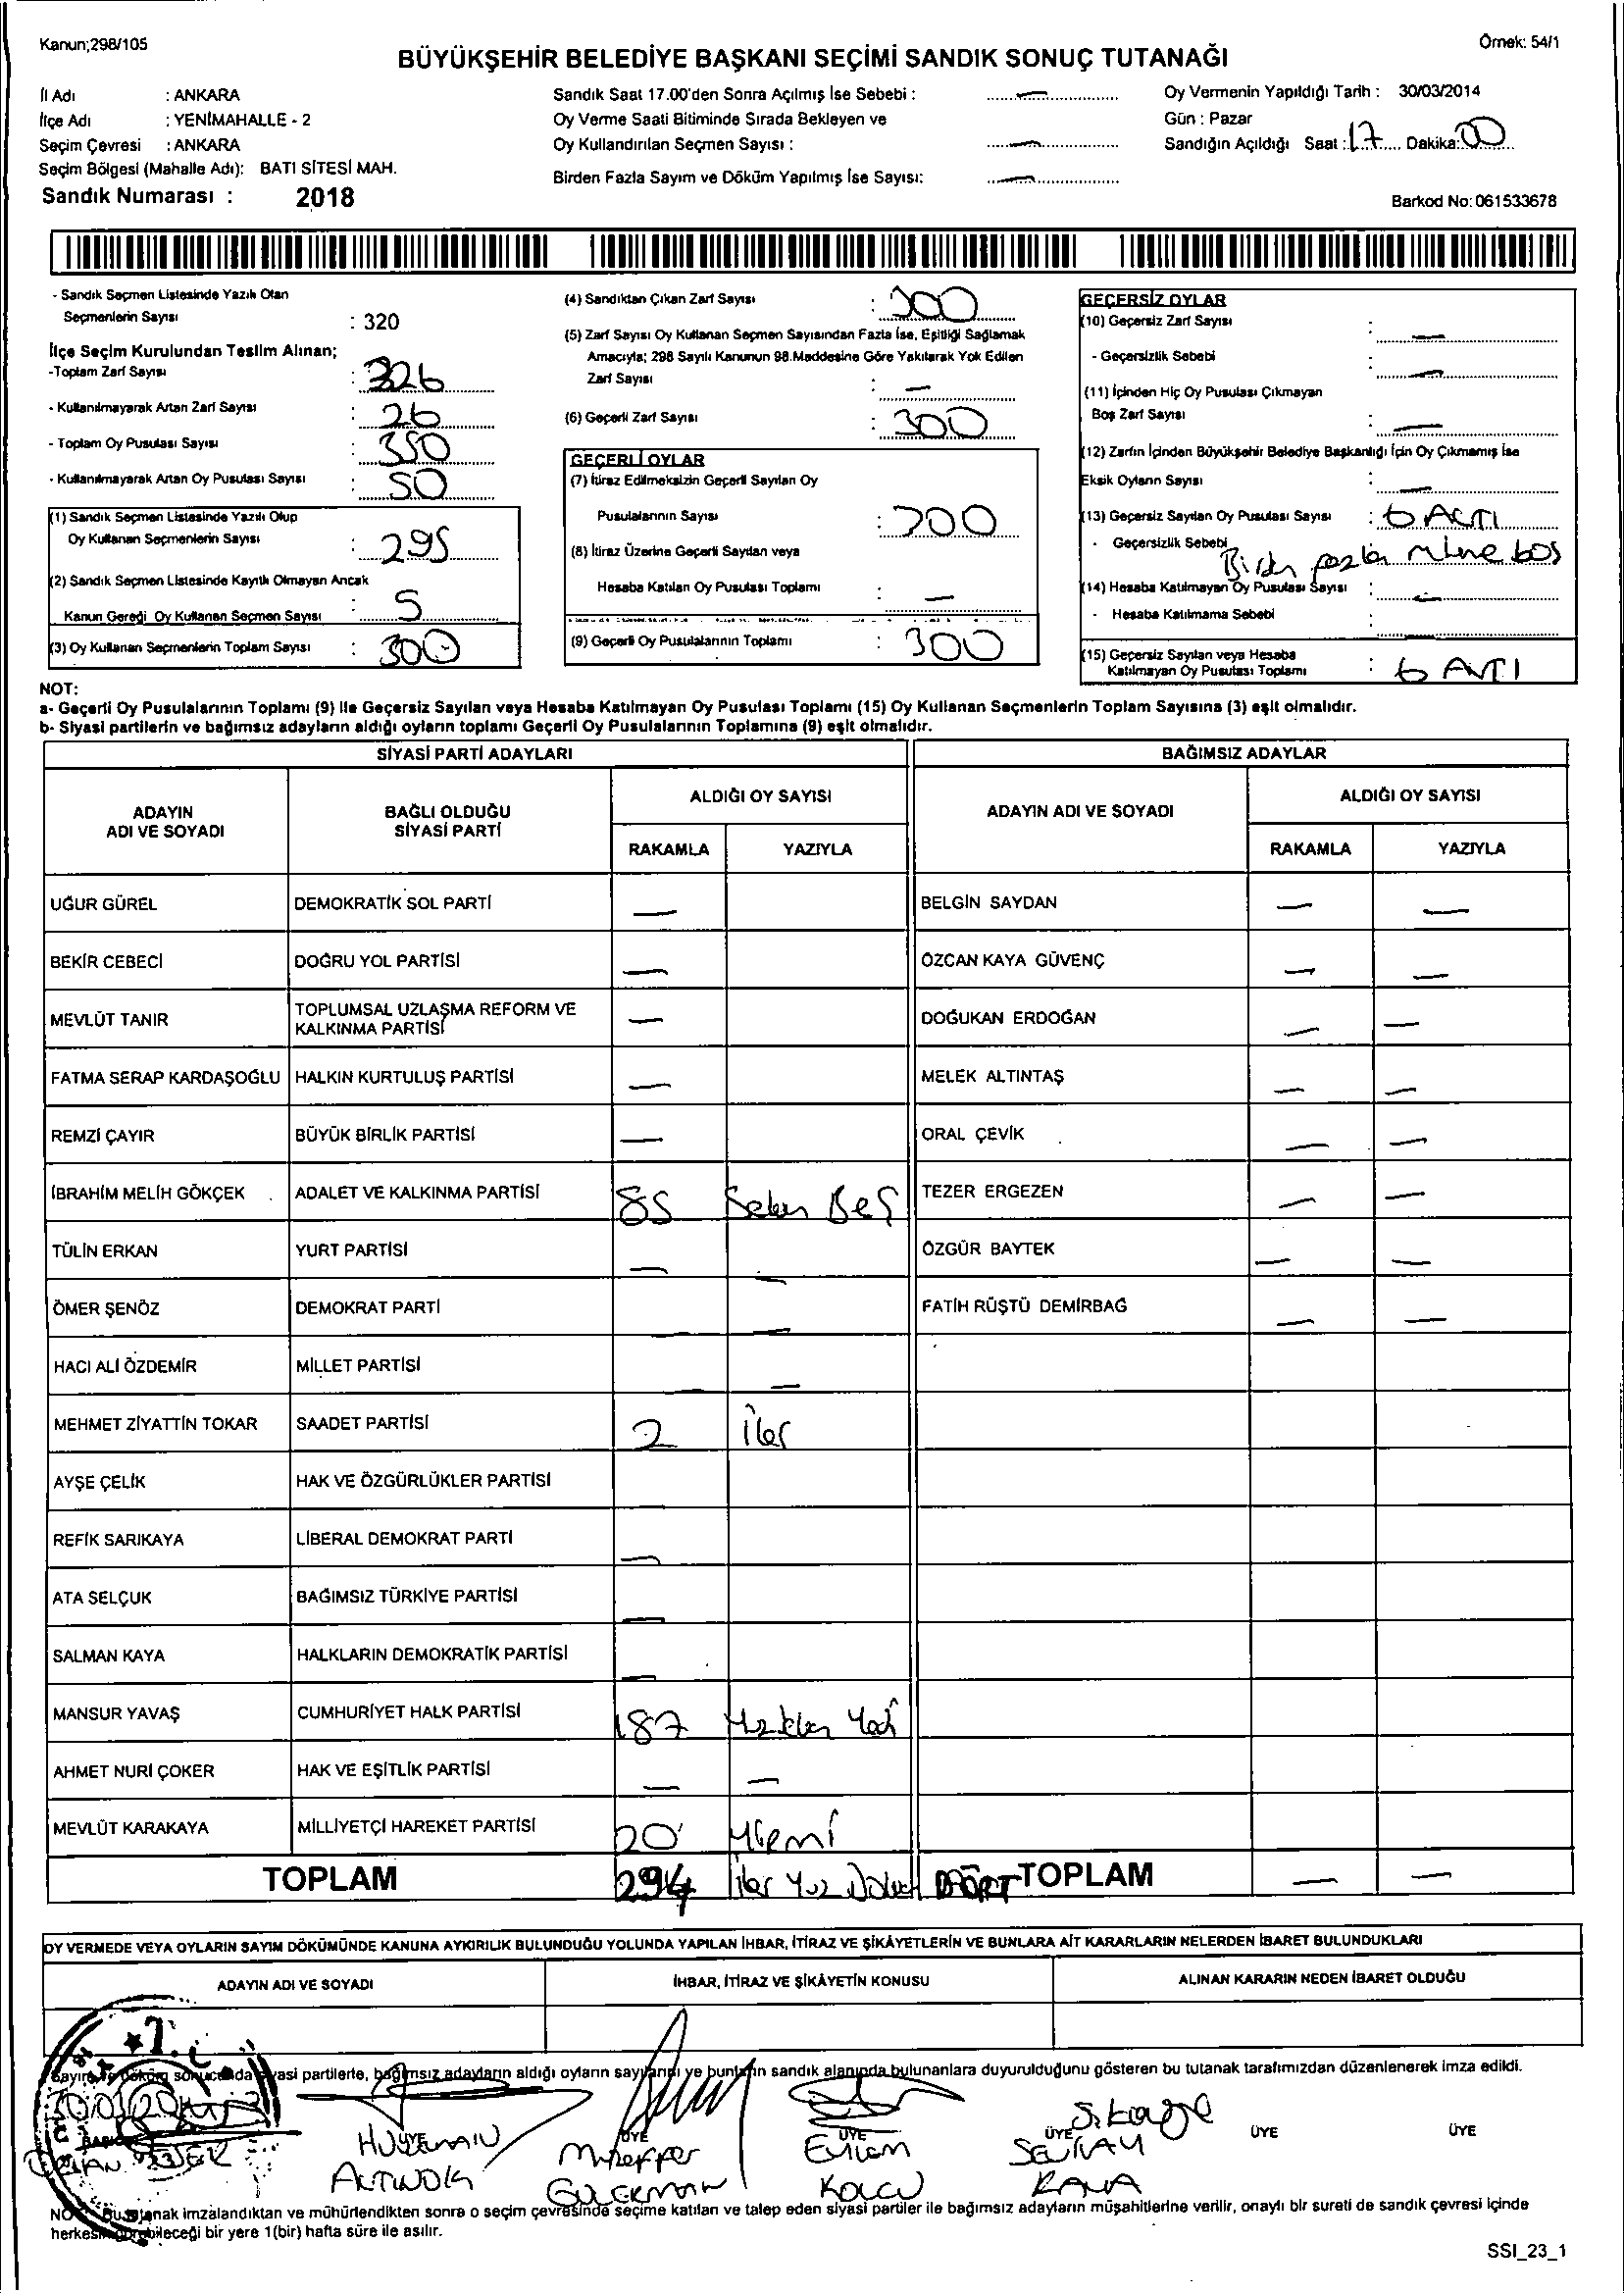 Kanun;298/105
Örnek: 54/1
BÜYÜKŞEHİR BELEDİYE BAŞKANI SEÇİMİ SANDIK SONUÇ TUTANAĞI
İl Adı : ANKARA
İlçe Adı : YENİMAHALLE - 2
Seçim Çevresi : ANKARA
Seçim Bölgesi (Mahalle Adı): BATI SİTESİ MAH.
Sandık Numarası : 2018
Sandık Saat 17.00'den Sonra Açılmış İse Sebebi : —
Oy Verme Saati Bitiminde Sırada Bekleyen ve
Oy Kullandırılan Seçmen Sayısı : —
Birden Fazla Sayım ve Döküm Yapılmış İse Sayısı: —
Oy Vermenin Yapıldığı Tarih : 30/03/2014
Gün : Pazar
Sandığın Açıldığı Saat : 17 Dakika: 00
Barkod No: 061533678
- Sandık Seçmen Listesinde Yazılı Olan
Seçmenlerin Sayısı : 320
İlçe Seçim Kurulundan Teslim Alınan;
-Toplam Zarf Sayısı : 326
- Kullanılmayarak Artan Zarf Sayısı : 26
- Toplam Oy Pusulası Sayısı : 350
- Kullanılmayarak Artan Oy Pusulası Sayısı : 50
(1) Sandık Seçmen Listesinde Yazılı Olup
Oy Kullanan Seçmenlerin Sayısı : 295
(2) Sandık Seçmen Listesinde Kayıtlı Olmayan Ancak
Kanun Gereği Oy Kullanan Seçmen Sayısı : 5
(3) Oy Kullanan Seçmenlerin Toplam Sayısı : 300
(4) Sandıktan Çıkan Zarf Sayısı : 300
(5) Zarf Sayısı Oy Kullanan Seçmen Sayısından Fazla İse, Eşitliği Sağlamak
Amacıyla; 298 Sayılı Kanunun 98.Maddesine Göre Yakılarak Yok Edilen
Zarf Sayısı : —
(6) Geçerli Zarf Sayısı : 300
GEÇERLİ OYLAR
(7) İtiraz Edilmeksizin Geçerli Sayılan Oy
Pusulalarının Sayısı : 300
(8) İtiraz Üzerine Geçerli Sayılan veya
Hesaba Katılan Oy Pusulası Toplamı : —
(9) Geçerli Oy Pusulalarının Toplamı : 300
GEÇERSİZ OYLAR
(10) Geçersiz Zarf Sayısı : —
- Geçersizlik Sebebi : —
(11) İçinden Hiç Oy Pusulası Çıkmayan
Boş Zarf Sayısı : —
(12) Zarfın İçinden Büyükşehir Belediye Başkanlığı İçin Oy Çıkmamış İse
Eksik Oyların Sayısı : —
(13) Geçersiz Sayılan Oy Pusulası Sayısı : 6 ALTI
- Geçersizlik Sebebi boş
(14) Hesaba Katılmayan Oy Pusulası Sayısı : —
- Hesaba Katılmama Sebebi :
(15) Geçersiz Sayılan veya Hesaba
Katılmayan Oy Pusulası Toplamı : 6 ALTI
NOT:
a- Geçerli Oy Pusulalarının Toplamı (9) İle Geçersiz Sayılan veya Hesaba Katılmayan Oy Pusulası Toplamı (15) Oy Kullanan Seçmenlerin Toplam Sayısına (3) eşit olmalıdır.
b- Siyasi partilerin ve bağımsız adayların aldığı oyların toplamı Geçerli Oy Pusulalarının Toplamına (9) eşit olmalıdır.
SİYASİ PARTİ ADAYLARI BAĞIMSIZ ADAYLAR
ADAYIN ADI VE SOYADI BAĞLI OLDUĞU SİYASİ PARTİ ALDIĞI OY SAYISI ADAYIN ADI VE SOYADI ALDIĞI OY SAYISI
RAKAMLA YAZIYLA RAKAMLA YAZIYLA
UĞUR GÜREL DEMOKRATİK SOL PARTİ — BELGİN SAYDAN — —
BEKİR CEBECİ DOĞRU YOL PARTİSİ — ÖZCAN KAYA GÜVENÇ — —
MEVLÜT TANIR TOPLUMSAL UZLAŞMA REFORM VE KALKINMA PARTİSİ — DOĞUKAN ERDOĞAN — —
FATMA SERAP KARDAŞOĞLU HALKIN KURTULUŞ PARTİSİ — MELEK ALTINTAŞ — —
REMZİ ÇAYIR BÜYÜK BİRLİK PARTİSİ — ORAL ÇEVİK — —
İBRAHİM MELİH GÖKÇEK ADALET VE KALKINMA PARTİSİ 85 Seksen Beş TEZER ERGEZEN — —
TÜLİN ERKAN YURT PARTİSİ — — ÖZGÜR BAYTEK — —
ÖMER ŞENÖZ DEMOKRAT PARTİ — — FATİH RÜŞTÜ DEMİRBAĞ — —
HACI ALİ ÖZDEMİR MİLLET PARTİSİ — —
MEHMET ZİYATTİN TOKAR SAADET PARTİSİ 2 İki
AYŞE ÇELİK HAK VE ÖZGÜRLÜKLER PARTİSİ
REFİK SARIKAYA LİBERAL DEMOKRAT PARTİ —
ATA SELÇUK BAĞIMSIZ TÜRKİYE PARTİSİ —
SALMAN KAYA HALKLARIN DEMOKRATİK PARTİSİ —
MANSUR YAVAŞ CUMHURİYET HALK PARTİSİ 187
AHMET NURİ ÇOKER HAK VE EŞİTLİK PARTİSİ — —
MEVLÜT KARAKAYA MİLLİYETÇİ HAREKET PARTİSİ 20 Yirmi
TOPLAM 294 İki Yüz Doksan DÖRT TOPLAM — —
OY VERMEDE VEYA OYLARIN SAYIM DÖKÜMÜNDE KANUNA AYKIRILIK BULUNDUĞU YOLUNDA YAPILAN İHBAR, İTİRAZ VE ŞİKÂYETLERİN VE BUNLARA AİT KARARLARIN NELERDEN İBARET BULUNDUKLARI
ADAYIN ADI VE SOYADI İHBAR, İTİRAZ VE ŞİKÂYETİN KONUSU ALINAN KARARIN NEDEN İBARET OLDUĞU
T.C.
Sayım ve döküm sonucunda siyasi partilerle, bağımsız adayların aldığı oyların sayılarını ve bunların sandık alanında bulunanlara duyurulduğunu gösteren bu tutanak tarafımızdan düzenlenerek imza edildi.
ÜYE ÜYE ÜYE ÜYE ÜYE ÜYE
HÜSEYİN Muzeffer Evlem SEVRAY
ALTINDİŞ KOLCU KAYA
NOT: Bu tutanak imzalandıktan ve mühürlendikten sonra o seçim çevresinde seçime katılan ve talep eden siyasi partiler ile bağımsız adayların müşahitlerine verilir, onaylı bir sureti de sandık çevresi içinde
herkesin görebileceği bir yere 1(bir) hafta süre ile asılır.
SSI_23_1